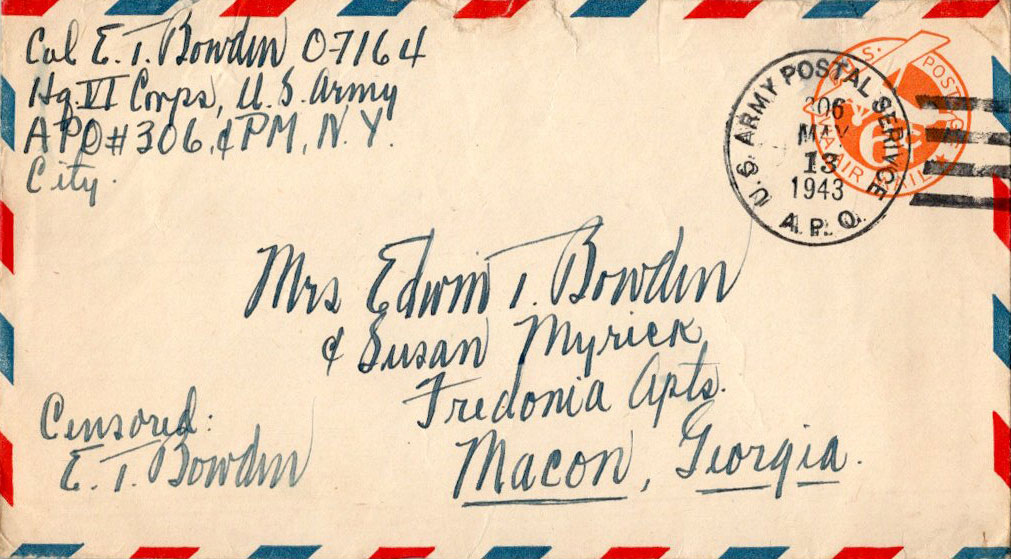 Col E. T. Bowden 0-7164
Hq. VI Corps, U. S. Army
APO #306, ¢ PM, N. Y.
City.
U. S. ARMY POSTAL SERIVCE
306
MAY
13
1943
A. P. O.
U.S. POSTAGE
6¢
VIA AIR MAIL
Mrs Edwin T. Bowden
¢ Susan Myrick
Fredonia Apts.
Macon, Georgia.
Censored:
E. T. Bowden